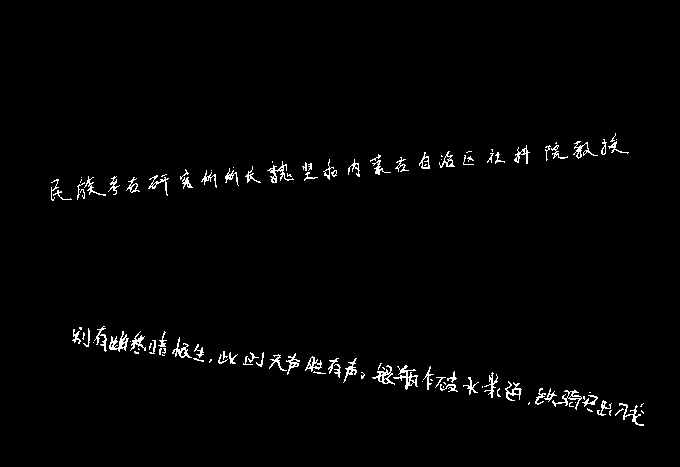 民族考古研究所所长魏坚和内蒙古自治区社科院教授
别有幽愁暗恨生，此时无声胜有声。银瓶乍破水浆迸，铁骑突出刀戈